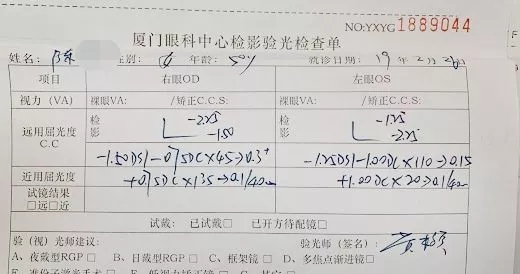 NO:YXYG 1889044
厦门眼科中心检影验光检查单
姓名: 陈 性别: 年龄: 50y 就诊日期: 19年2月26日
项目 右眼OD 左眼OS
视力(VA) 裸眼VA: /矫正C.C.S: 裸眼VA: /矫正C.C.S:
远用屈光度 C.C 检影 -2.25 -1.50 检影 -1.25 -2.25
-1.50DS/-0.75DC×45→0.3+ -1.25DS/-1.00DC×110→0.15
近用屈光度 +0.75DC×135→0.1/40cm +1.00DC×20→0.1/40cm
试镜结果
□远□近
试戴: 已试戴□ 已开方待配镜□
验(视)光师建议: 验光师(签名):
A、夜戴型RGP□ B、日戴型RGP□ C、框架镜□ D、多焦点渐进镜□